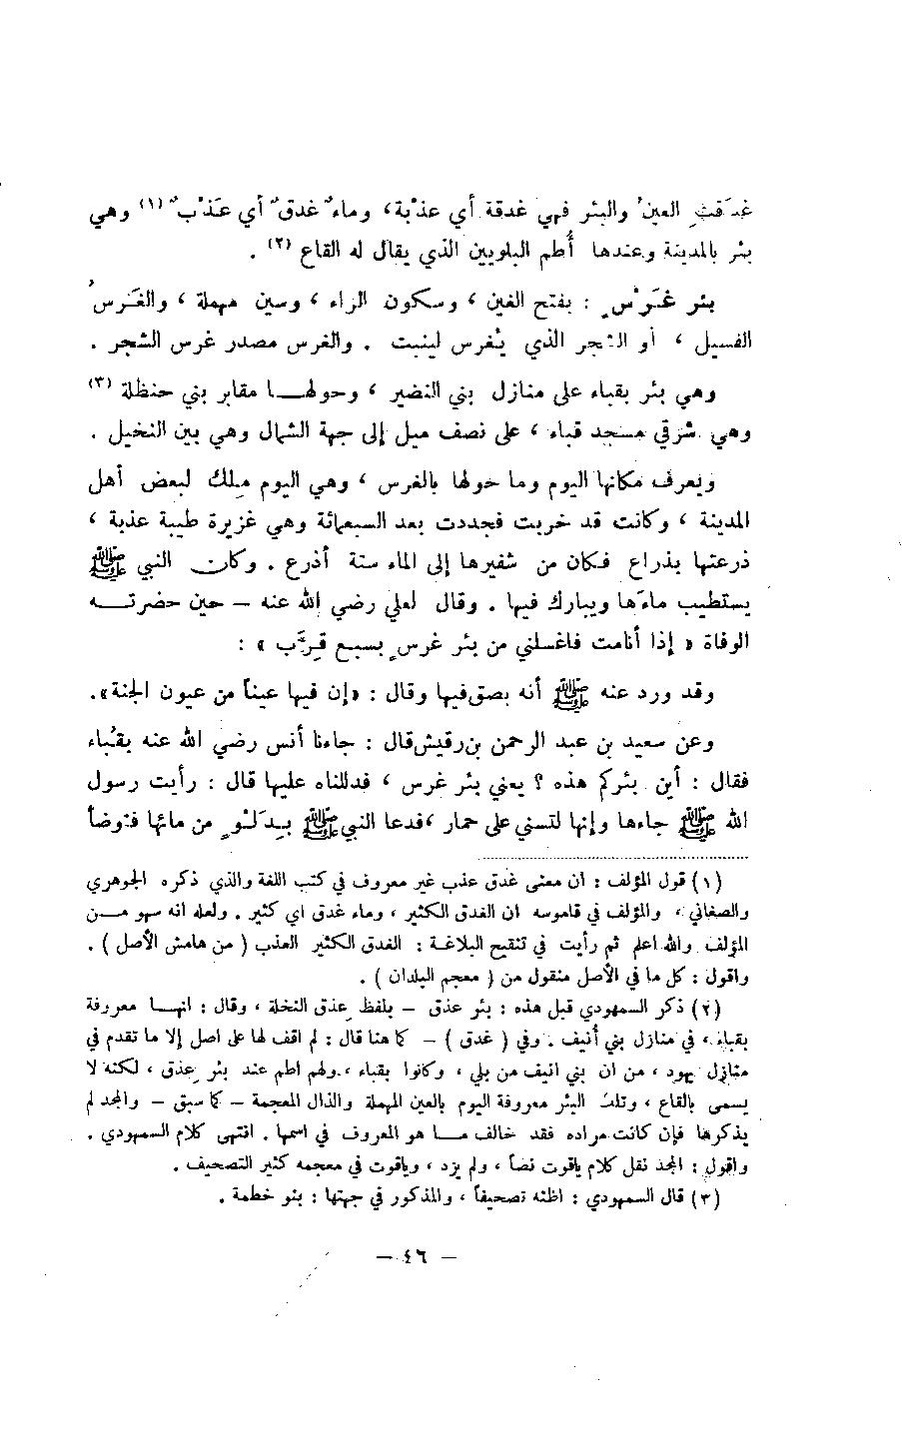 غدَقتِ العينُ والبئر فهي غدقة أي عذْبة، وماءٌ غدقٌ أي عَذْبٌ (١) وهي
بئر بالمدينة وعندها أُطم البلويين الذي يقال له القاع (٢) .
بئر غَرْسٍ : بفتح الغين ، وسكون الراء ، وسين مهملة ، والغَرسُ
الفسيل ، أو الشجر الذي يُغرس لينبت . والغرس مصدر غرس الشجر .
وهي بئر بقباء على منازل بني النضير ، وحولها مقابر بني حنظلة (٣)
وهي شرقي مسجد قباء ، على نصف ميل إلى جهة الشمال وهي بين النخيل .
ويعرف مكانها اليوم وما حولها بالغرس ، وهي اليوم مِلك لبعض أهل
المدينة ، وكانت قد خربت فجددت بعد السبعمائة وهي غزيرة طيبة عذبة ،
ذرعتها بذراع فكان من شفيرها إلى الماء ستة أذرع . وكان النبي ﷺ
يستطيب ماءَها ويبارك فيها . وقال لعلي رضي الله عنه – حين حضرته
الوفاة « إذا أنامت فاغسلني من بئر غرسٍ بسبع قِرَب » :
وقد ورد عنه ﷺ أنه بصق فيها وقال : «إن فيها عيناً من عيون الجنة».
وعن سعيد بن عبد الرحمن بن رقيش قال : جاءنا أنس رضي الله عنه بقُباء
فقال : أين بئركم هذه ؟ يعني بئر غرس ، فدللناه عليها قال : رأيت رسول
الله ﷺ جاءها وإنها لتسنى على حمار ، فدعا النبي ﷺ بِدَلْوٍ من مائها فتوضأ
(١) قول المؤلف : ان معنى غدق عذب غير معروف في كتب اللغة والذي ذكره الجوهري
والصغاني ، والمؤلف في قاموسه ان الغدق الكثير ، وماء غدق اي كثير . ولعله انه سهو من
المؤلف والله اعلم ثم رأيت في تنقيح البلاغة : الغدق الكثير العذب ( من هامش الأصل ) .
واقول : كل ما في الأصل منقول من ( معجم البلدان ) .
(٢) ذكر السمهودي قبل هذه : بئر عذق – بلفظ عِذق النخلة ، وقال : انها معروفة
بقباء ، في منازل بني أُنيف . وفي ( غدق ) – كما هنا قال : لم اقف لها على اصل إلا ما تقدم في
منازل يهود ، من ان بني انيف من بلي ، وكانوا بقباء ، ولهم اطم عند بئر عِذق ، لكنه لا
يسمى بالقاع ، وتلك البئر معروفة اليوم بالعين المهملة والذال المعجمة – كما سبق – والمجد لم
يذكرها فإن كانت مراده فقد خالف ما هو المعروف في اسمها . انتهى كلام السمهودي .
واقول : المجد نقل كلام ياقوت نصاً ، ولم يزد ، وياقوت في معجمه كثير التصحيف .
(٣) قال السمهودي : اظنه تصحيفاً ، والمذكور في جهتها : بنو خطمة .
– ٤٦ –